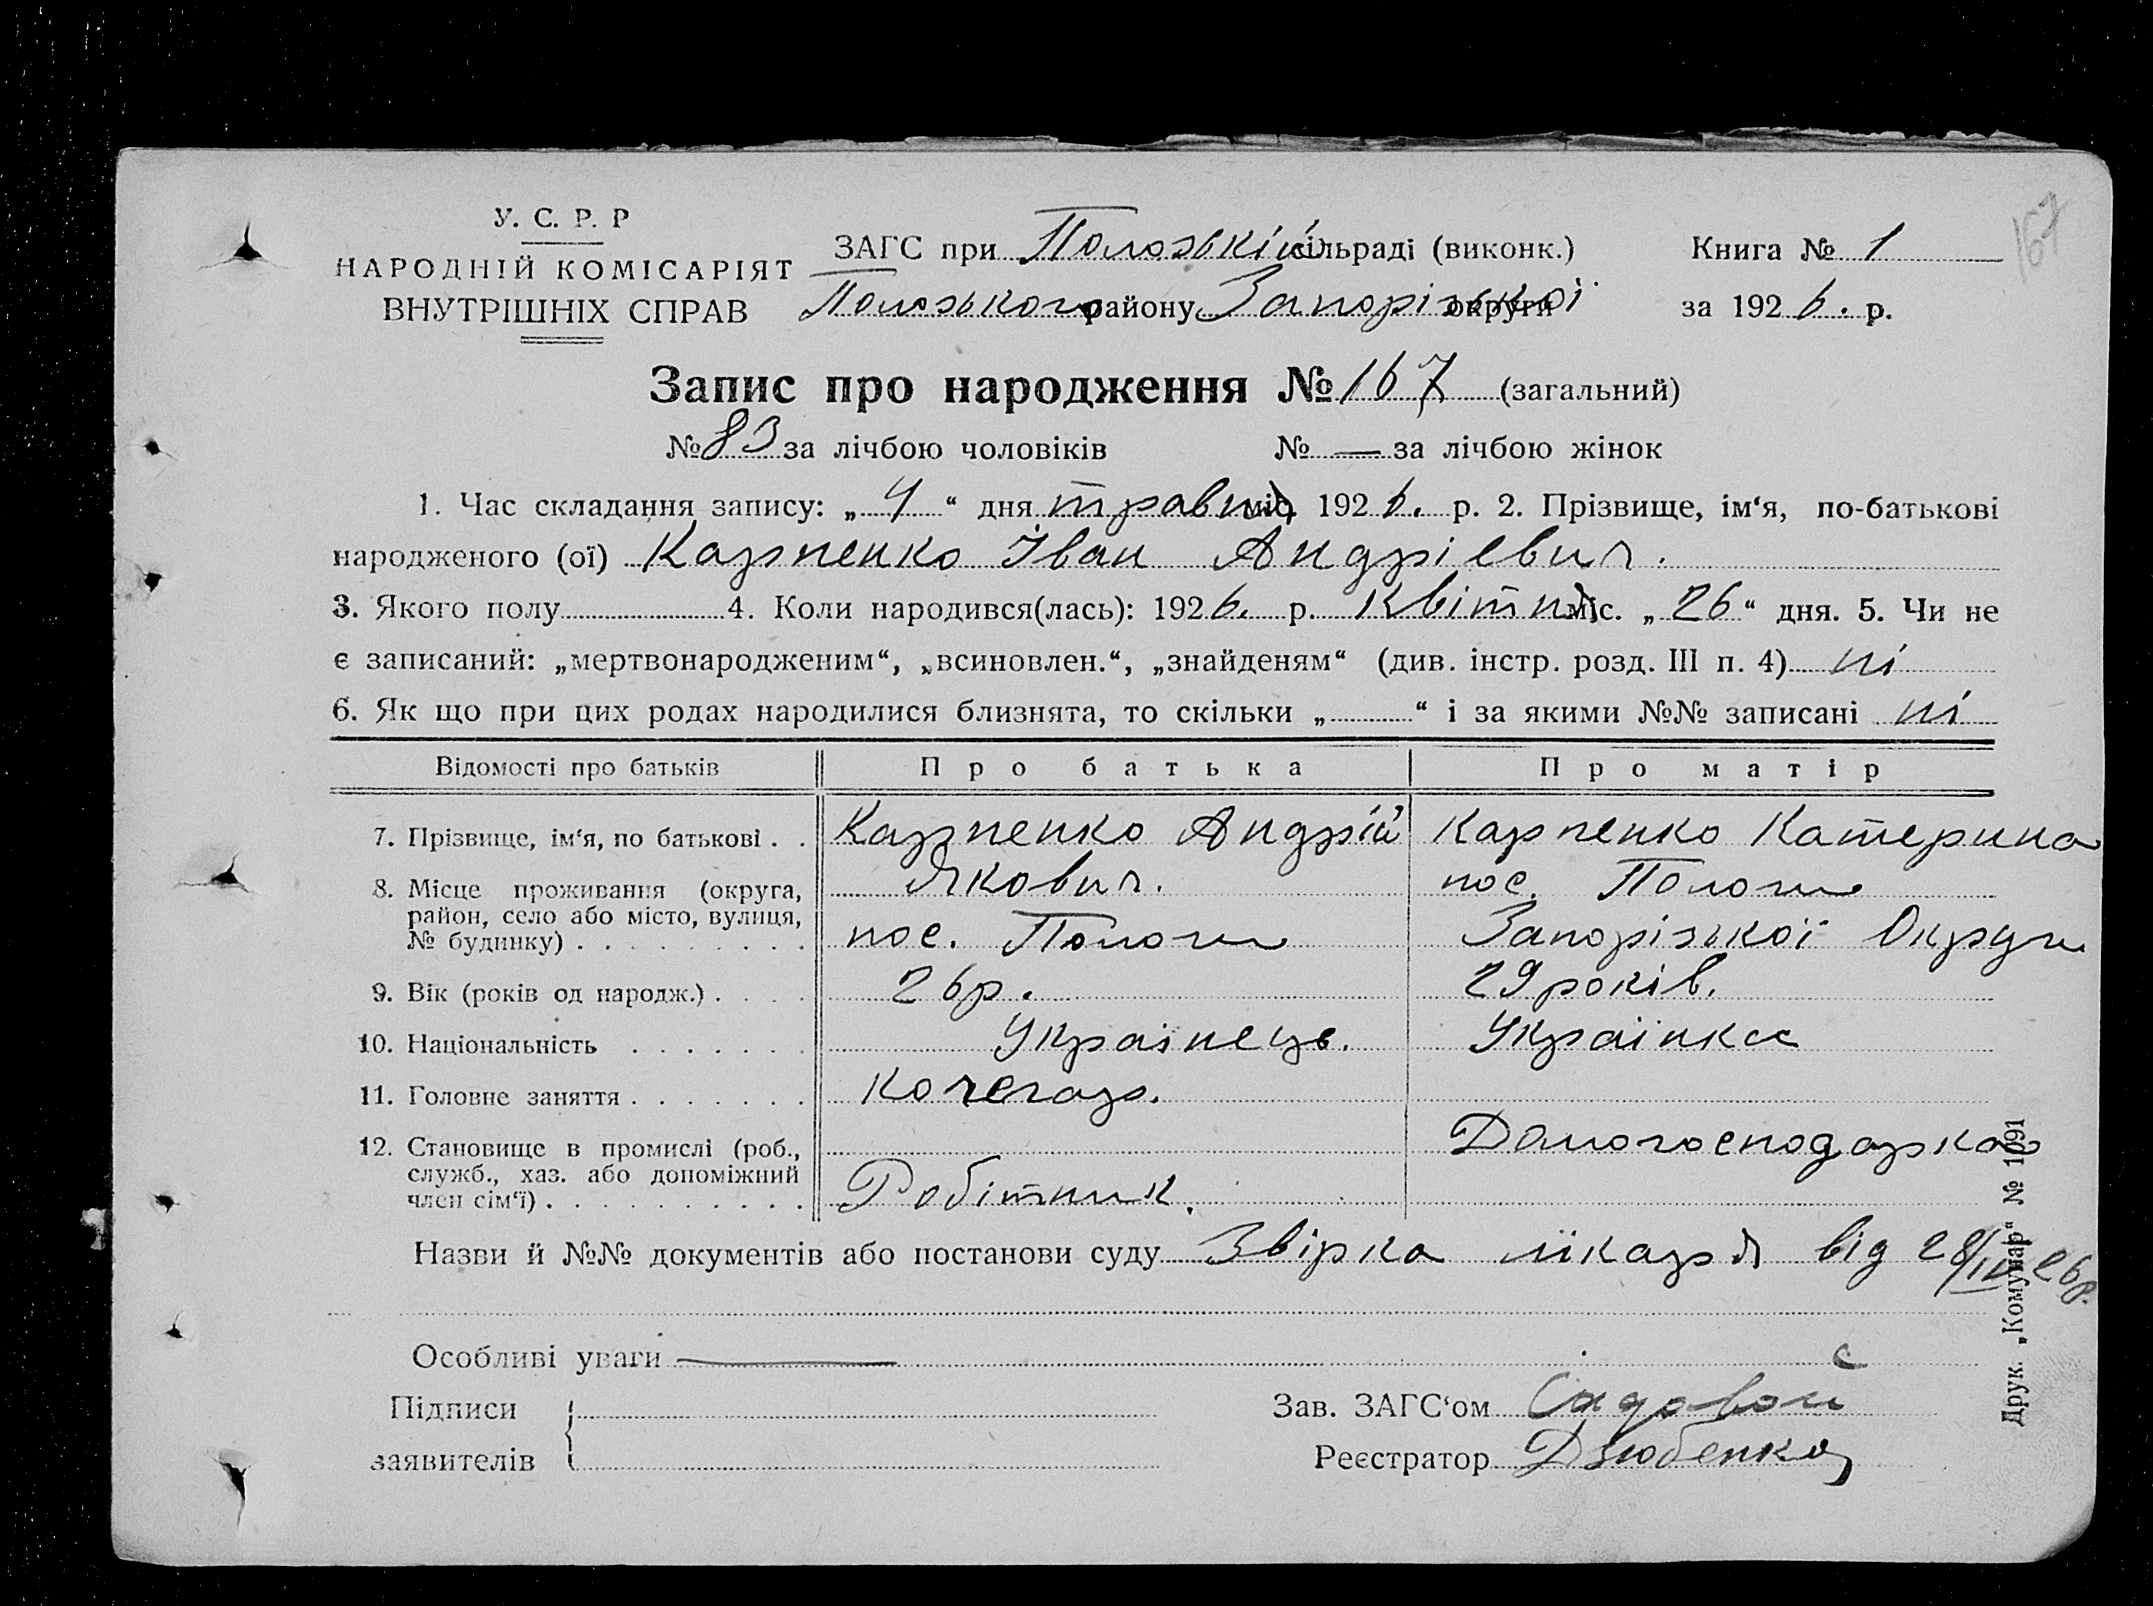 167
У. С. Р. Р
НАРОДНІЙ КОМІСАРІЯТ
ВНУТРІШНІХ СПРАВ
ЗАГС при Полозькій сільраді (виконк.)
Полозького району Запорізької округи
Книга № 1
за 1926. р.
Запис про народження № 167 (загальний)
№ 83 за лічбою чоловіків № — за лічбою жінок
1. Час складання запису: „ 4 “ дня травня міс. 1926. р. 2. Прізвище, ім‘я, по-батькові
народженого (ої) Карпенко Іван Андрієвич.
3. Якого полу 4. Коли народився(лась): 1926. р. Квітня міс. „ 26 “ дня. 5. Чи не
є записаний: „мертвонародженим“, „всиновлен.“, „знайденям“ (див. інстр. розд. III п. 4) ні
6. Як що при цих родах народилися близнята, то скільки „ “ і за якими №№ записані ні
Відомості про батьків Про батька Про матір
7. Прізвище, ім‘я, по батькові . . Карпенко Андрій Якович. Карпенко Катерина
8. Місце проживання (округа,
район, село або місто, вулиця,
№ будинку) . . . . . . . . . пос. Пологи пос. Пологи
Запорізької Округи
9. Вік (років од народж.) . . . . 26р. 29 років.
10. Національність . . . . . . . Українець. Українка
11. Головне заняття . . . . . . . Кочегар.
12. Становище в промислі (роб.,
служб., хаз. або допоміжний
член сім‘ї) . . . . . . . . . . Робітник. Домогосподарка
Назви й №№ документів або постанови суду Звірка лікаря від 28/IV 26р.
Особливі уваги —
Підписи
заявителів
Зав. ЗАГС‘ом Садовой
Реєстратор Дзюбенко
Друк. „Комунар“ № 1091